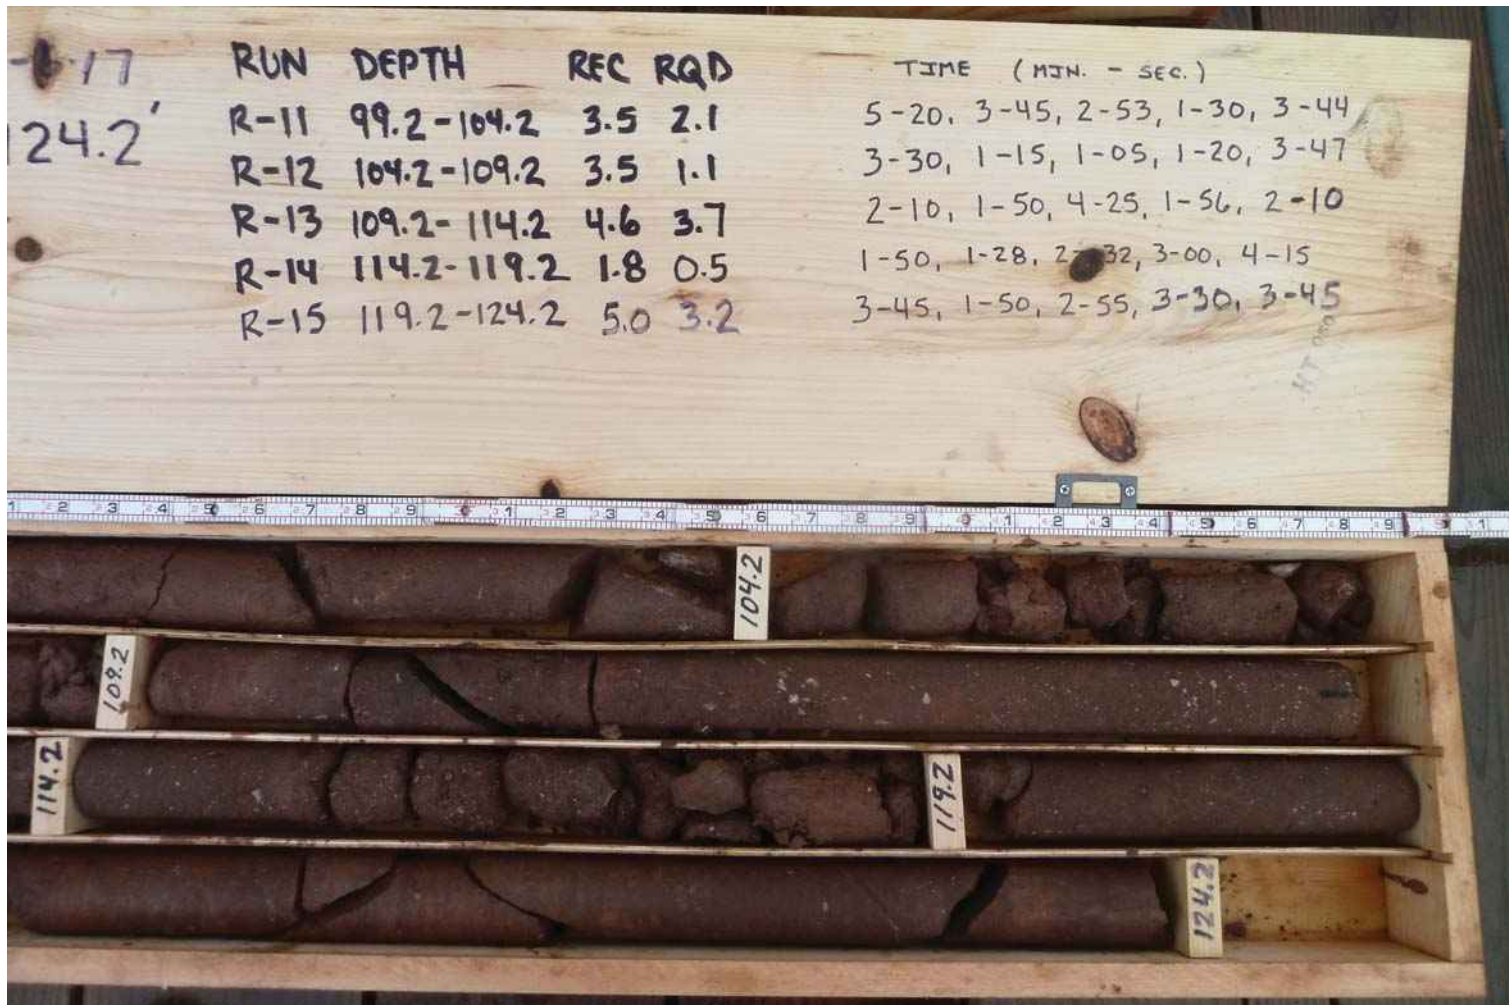 17
124.2'
RUN DEPTH REC RQD TIME (MIN. - SEC.)
R-11 99.2-104.2 3.5 2.1 5-20, 3-45, 2-53, 1-30, 3-44
R-12 104.2-109.2 3.5 1.1 3-30, 1-15, 1-05, 1-20, 3-47
R-13 109.2-114.2 4.6 3.7 2-10, 1-50, 4-25, 1-56, 2-10
R-14 114.2-119.2 1.8 0.5 1-50, 1-28, 2-32, 3-00, 4-15
R-15 119.2-124.2 5.0 3.2 3-45, 1-50, 2-55, 3-30, 3-45
1 2 3 4 5 6 7 8 9 1 2 3 4 5 6 7 8 9 1 2 3 4 5 6 7 8 9 1
104.2
109.2
114.2
119.2
124.2